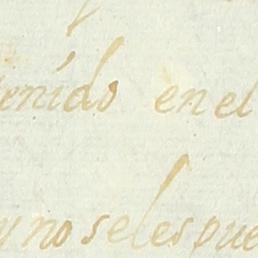 tenído en el
y no se les pue